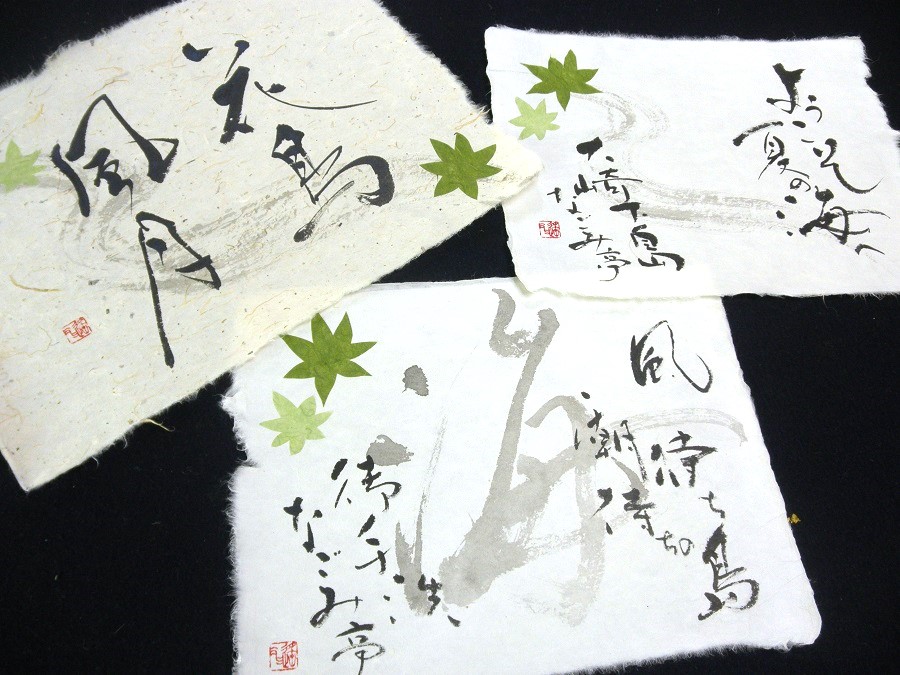 花鳥
風月
ようこそ
夏の海へ
大崎下島
なごみ亭
風待ち
潮待ちの
島
御手洗
なごみ亭